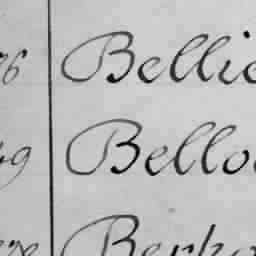 76 Bellie
49 Bello
Berho